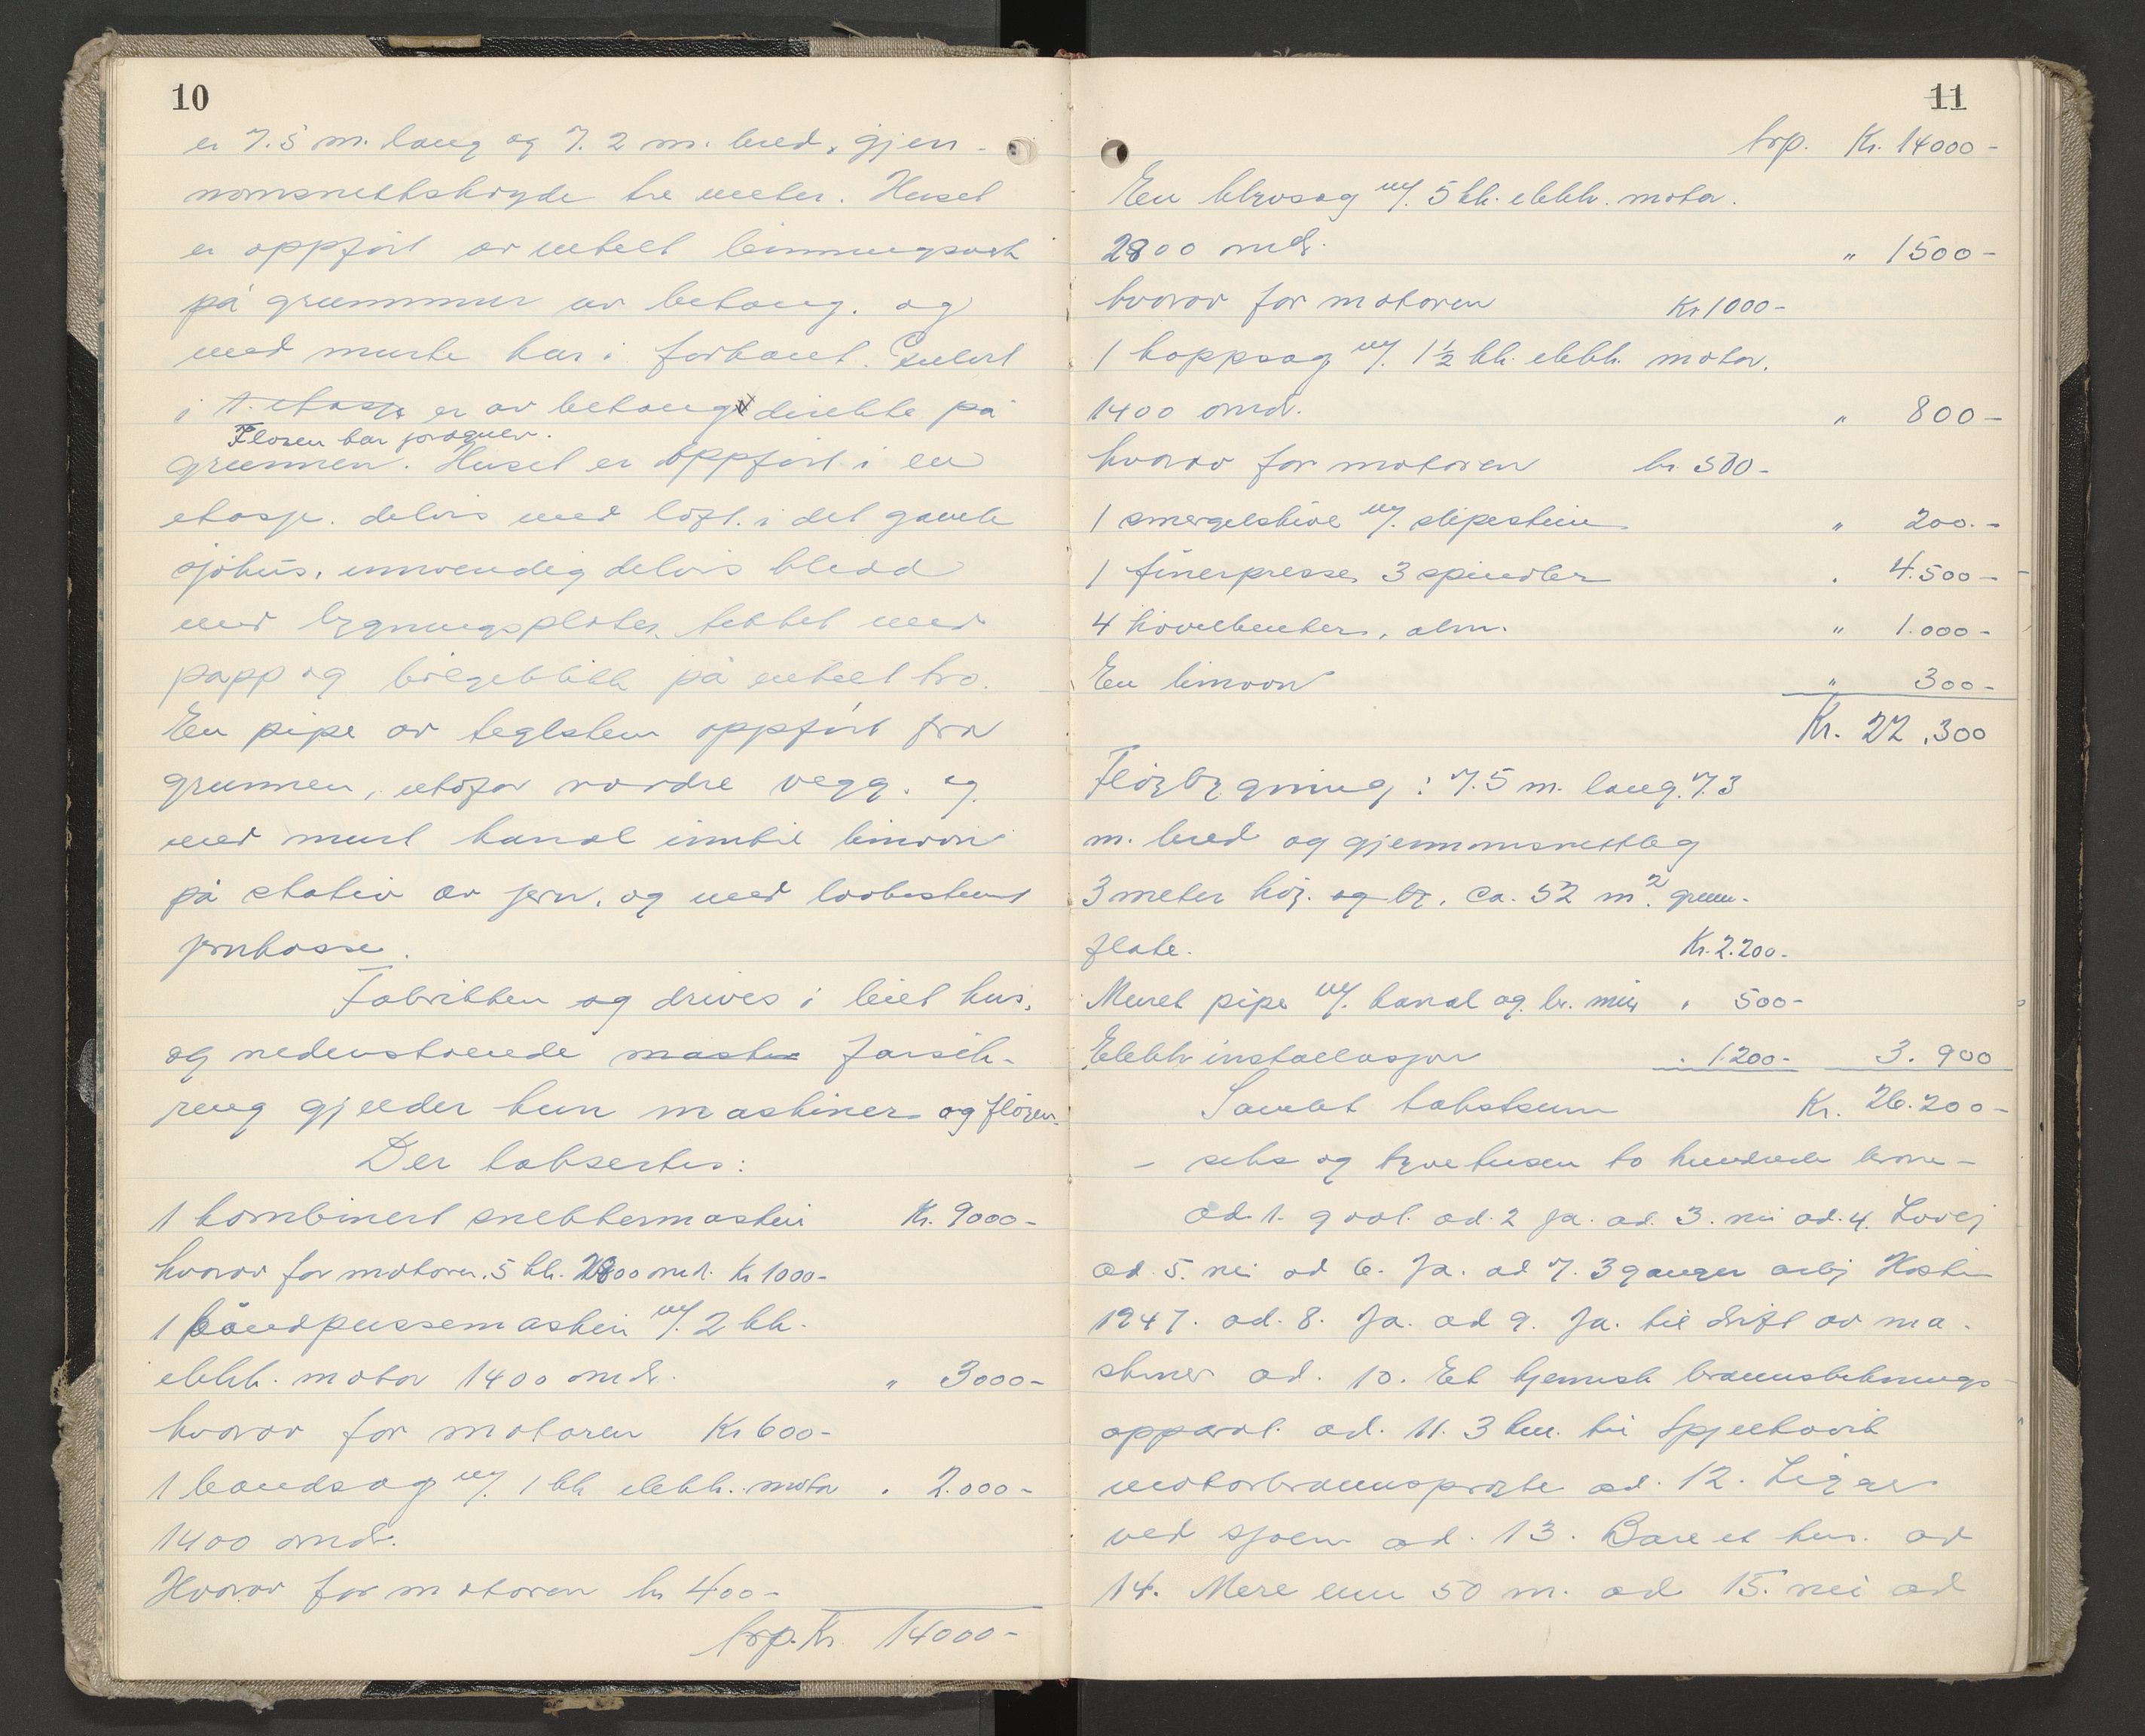 10
er 7.5 m. lang og 7.2 m. bred, gjen-
nomsnittshøyde tre meter. Huset
er oppført av uthelt binningsverk
på grunnmur av betong. og
med murte kar i forkant. Gulvet
i 1. etasje er av betong direkte på
Floren har props.
grunnen. Huset er oppført i en
etasje. delvis med loft. i det gamle
sjøhus, innvendig delvis kledd
med bygningsplater, tekket med
papp og bølgeblikk på uthelt tro.
En pipe av teglsten oppført fra
grunnen, utafor nordre vegg. og
med murt kanal inntil limovn
på stativ av jern, og med
jernkasse.
Fabrikken og drives i leiet hus,
og nedenstående maskin forsik-
ring gjelder kun maskiner og fløyen.
Der takseres:
1 kombinert snekkermaskin Kr. 9000-
hvorav for motoren. 5 hk. 2800 omd. Kr 1000-
1 båndpussemaskin m/. 2 hk.
elektr. motor 1400 omdr. " 3000-
hvorav for motoren Kr 600-
1 bandsag m/. 1 hk elektr. motor " 2.000-
1400 omdr.
Hvorav for motoren kr 400-
trp. Kr. 14000-
11
trp. Kr. 14000-
En kløvsag m/. 5 hk. elektr. motor.
2800 omdr. " 1500-
hvorav for motoren Kr 1000-
1 kappsag m/. 1½ hk. elektr. motor.
1400 omdr. " 800-
hvorav for motoren kr 500-
1 smergelskive m/. slipestein " 200.-
1 finerpresse, 3 spindler " 4.500-
4 høvelbenker, alm. " 1.000-
En limovn " 300-
Kr. 22.300
Fløybygning: 7.5 m. lang. 7.3
m. bred og gjennomsnittleg
3 meter høy. og br. ca. 52 m². grun-
flate. Kr. 2.200.-
Muret pipe m/. kanal og br. mur " 500-
Elektr installasjon " 1200- 3.900
Samlet takstsum Kr. 26.200-
- seks og tyve tusen to hundrede krone-
ad 1. god. ad. 2 Ja. ad. 3. nei ad. 4.
ad 5. nei ad 6. Ja. ad 7. 3 ganger arbj Høsten
1947. ad. 8. Ja. ad 9. Ja. til drift av ma-
skiner ad. 10. Et kjemisk brannsluknings-
apparat. ad. 11. 3 km. til Spjelkavik
motorbrannsprøyte ad. 12. Ligger
ved sjøen ad. 13. Bare et hus. ad
14. Mere enn 50 m. ad 15. nei ad